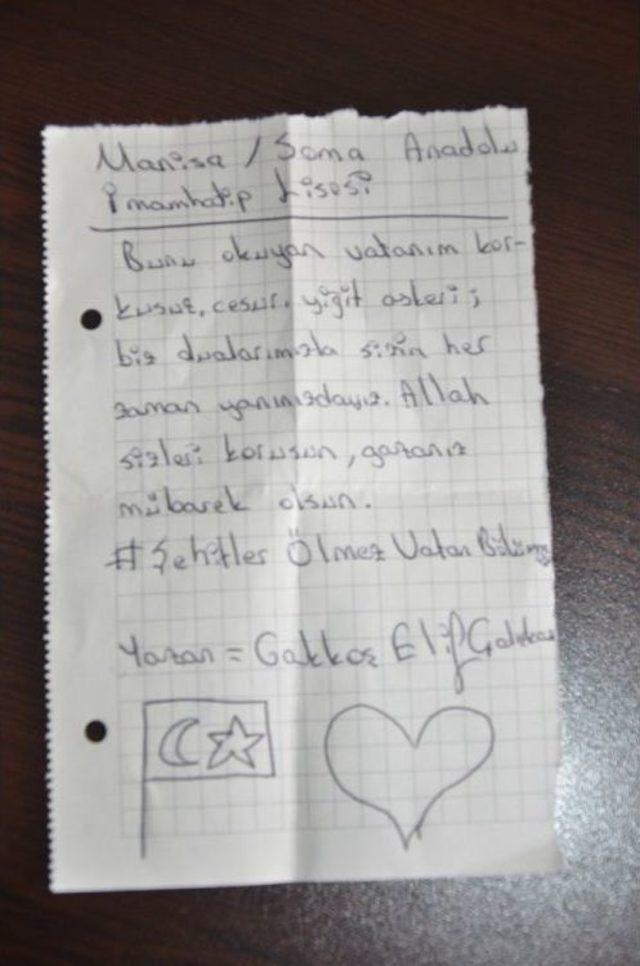 Manisa / Soma Anadolu
İmamhatip Lisesi
Bunu okuyan vatanım kor-
kusuz, cesur, yiğit askeri;
biz dualarımızla sizin her
zaman yanınızdayız. Allah
sizleri korusun, gazanız
mübarek olsun.
#Şehitler Ölmez Vatan Bölünmez
Yazan = Gakkoş Elif